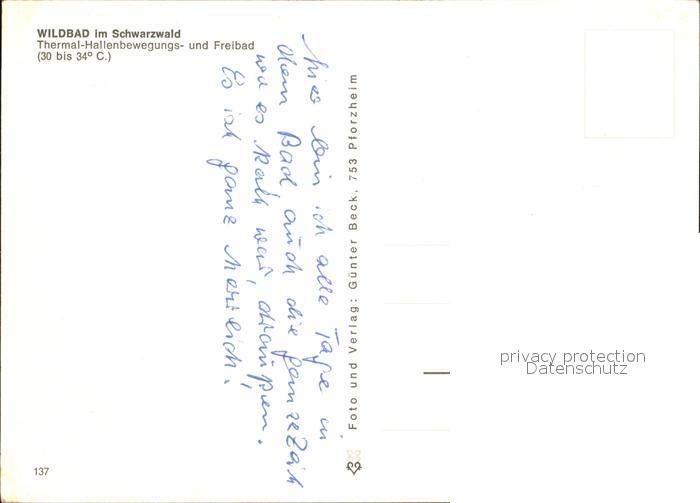 WILDBAD im Schwarzwald
Thermal-Hallenbewegungs- und Freibad
(30 bis 34° C.)
hier bin ich alle Tage in
dem Bad auch die ganze Zeit
wo es kalt war, draußen.
Es ist ganz herrlich!
Foto und Verlag: Günter Beck, 753 Pforzheim
privacy protection
Datenschutz
137